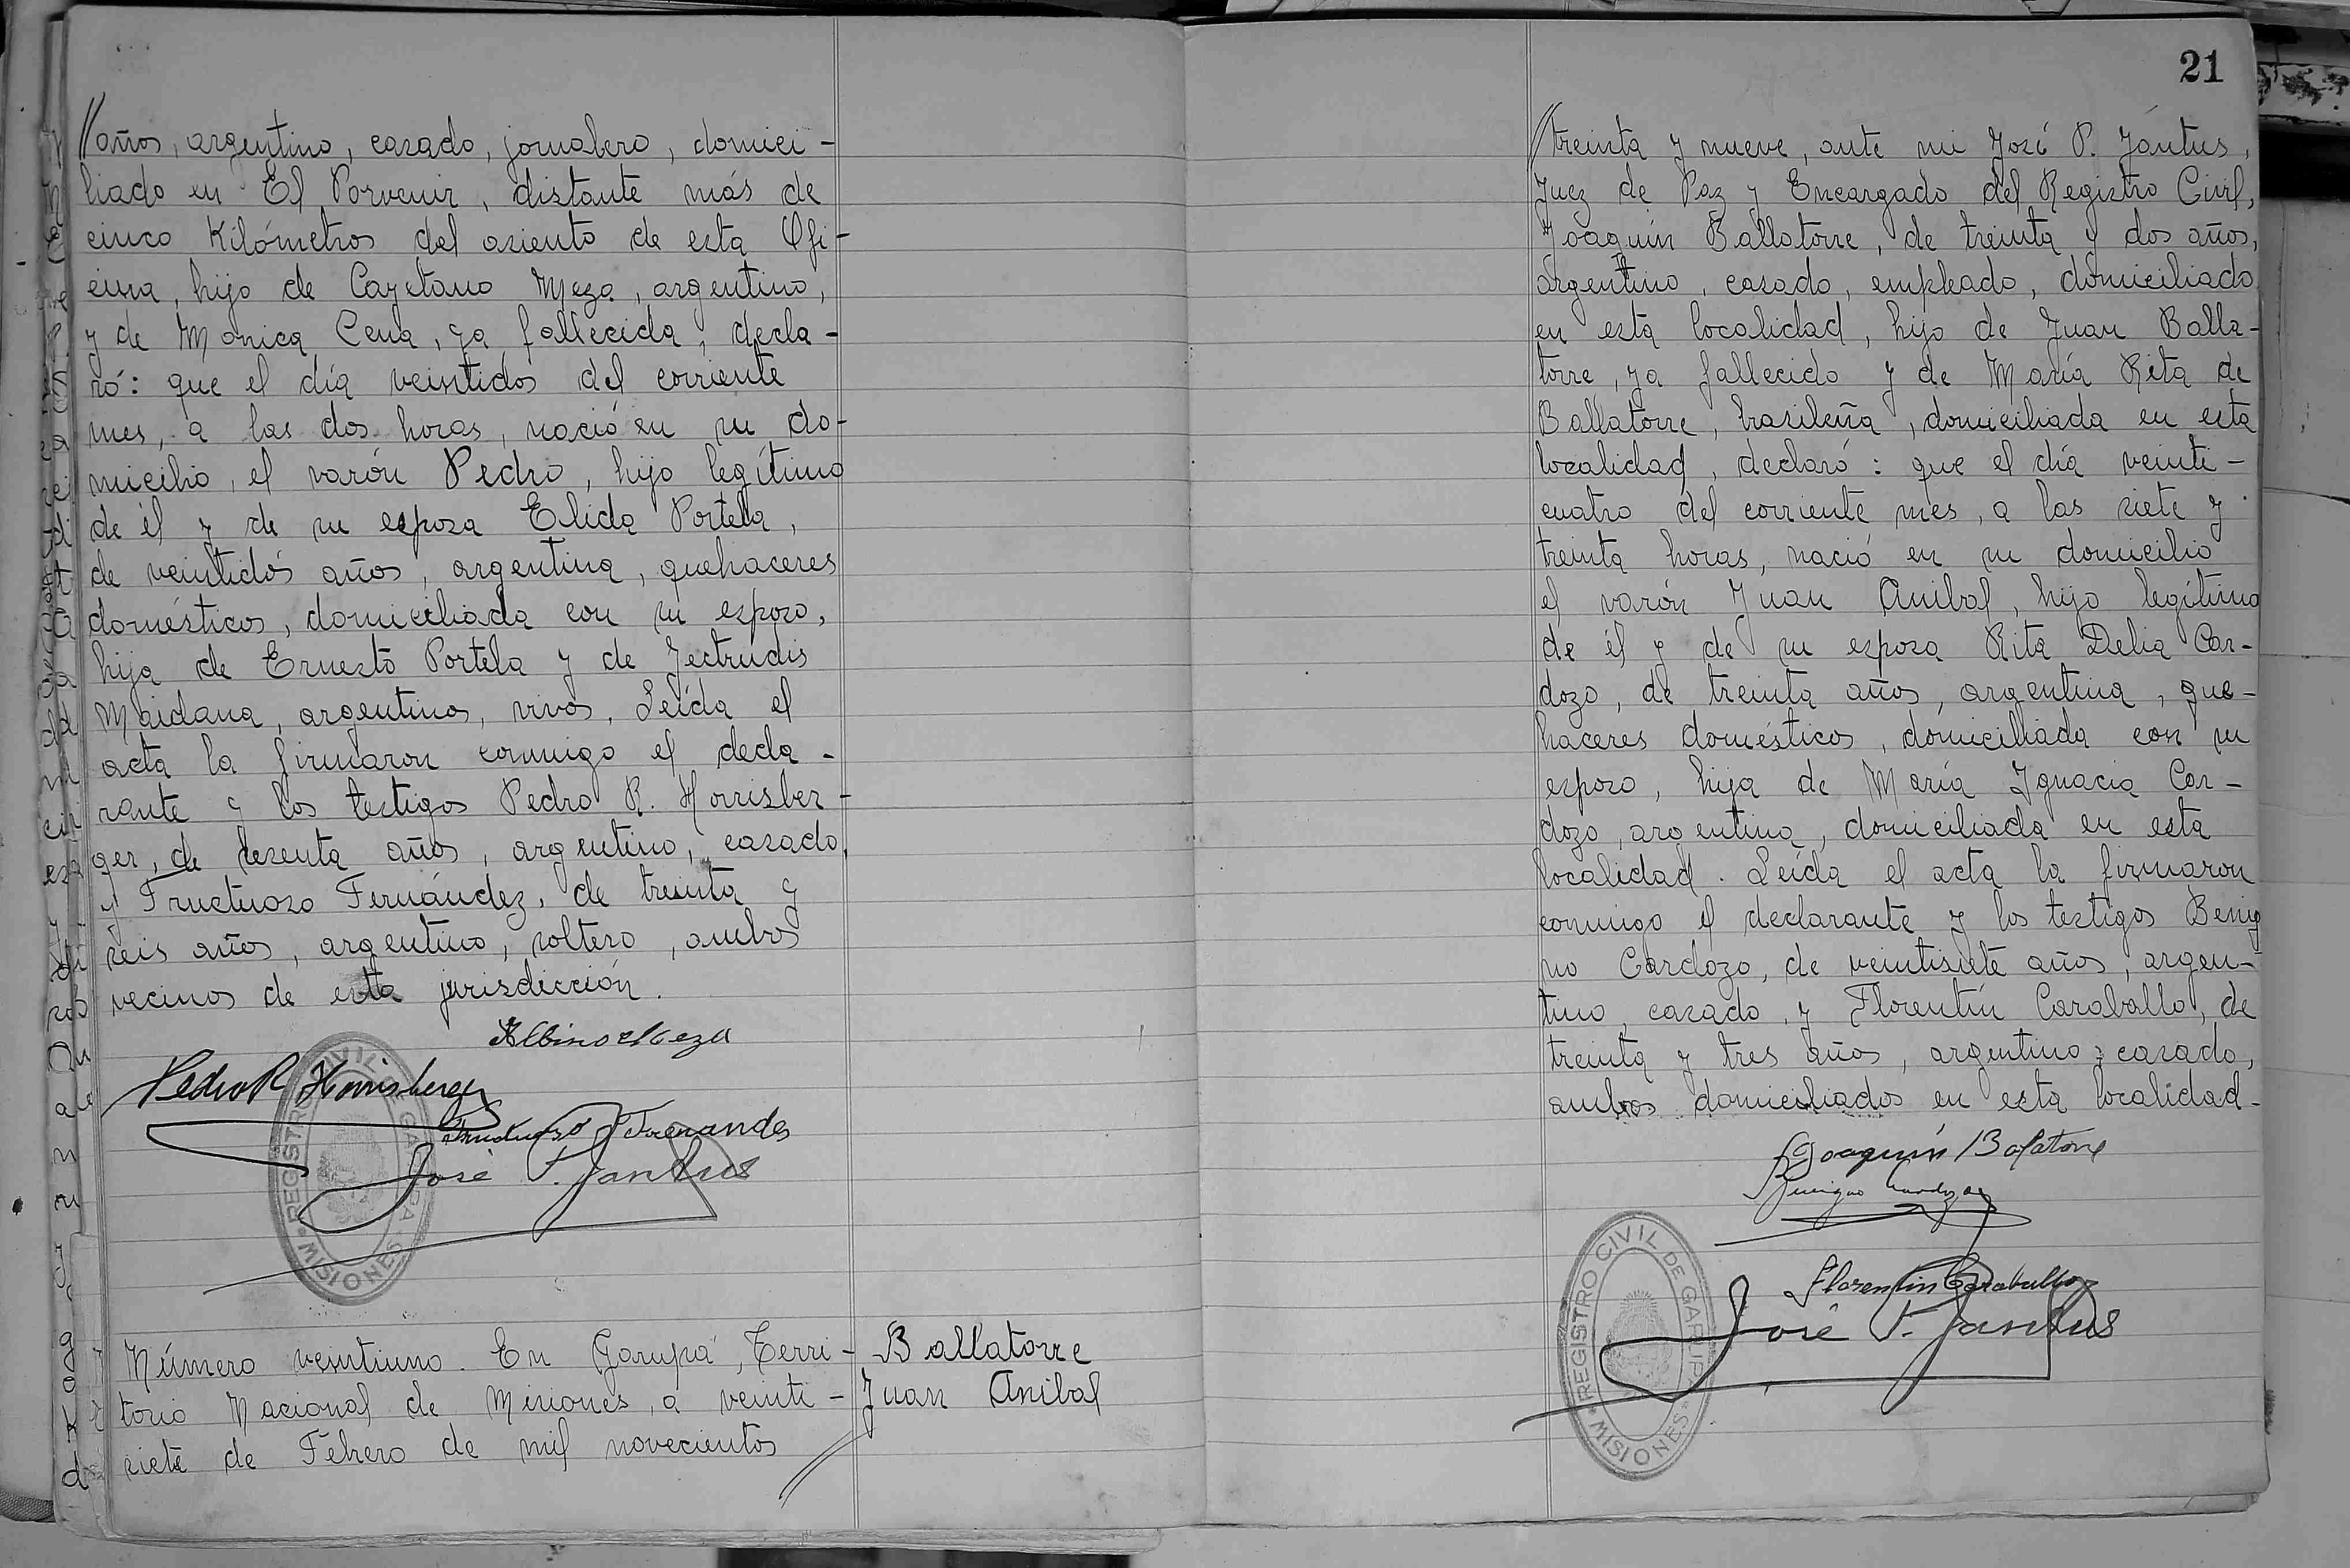 //años, argentino, casado, jornalero, domici-
liado en El Porvenir, distante más de
cinco Kilómetros del asiento de esta Ofi-
cina, hijo de Cayetano Meza, argentino,
y de Monica Cena, ya fallecida, decla-
ró: que el día veintidos del corriente
mes, a las dos horas, nació en su do-
micilio, el varón Pedro, hijo legítimo
de él y de su esposa Elida Portela,
de veintidós años, argentina, quehaceres
domésticos, domiciliada con su esposo,
hija de Ernesto Portela y de Jectrudis
Maidana, argentinos, vivos. Leída el
acta la firmaron conmigo el decla-
rante y los testigos Pedro R. Horrisber-
ger, de sesenta años, argentino, casado,
y Fructuoso Fernández, de treinta y
seis años, argentino, soltero, ambos
vecinos de esta jurisdicción.
Albino Meza
Pedro R Horrisberger
Fructuoso Fernandes
José P. Jantus
REGISTRO CIVIL DE GARUPA
MISIONES
Número veintiuno. En Garupá, Terri-
torio Nacional de Misiones, a veinti-
siete de Febrero de mil novecientos
//
Ballatorre
Juan Anibal
21
//treinta y nueve, ante mi José P. Jantus,
Juez de Paz y Encargado del Registro Civil,
Joaquín Ballatorre, de treinta y dos años,
argentino, casado, empleado, domiciliado
en esta localidad, hijo de Juan Balla-
torre, ya fallecido y de María Rita de
Ballatorre, brasileña, domiciliada en esta
localidad, declaró: que el día veinti-
cuatro del corriente mes, a las siete y
treinta horas, nació en su domicilio
el varón Juan Anibal, hijo legítimo
de él y de su esposa Rita Delia Car-
dozo, de treinta años, argentina, que-
haceres domésticos, domiciliada con su
esposo, hija de María Ignacia Car-
dozo, argentina, domiciliada en esta
localidad. Leída el acta la firmaron
conmigo el declarante y los testigos Benig
no Cardozo, de veintisiete años, argen-
tino, casado, y Florentín Caraballo, de
treinta y tres años, argentino, casado,
ambos domiciliados en esta localidad-
Joaquín Balatorre
Benigno Cardozo
Florentin Caraballo
José P. Jantus
REGISTRO CIVIL DE GARUPA
MISIONES